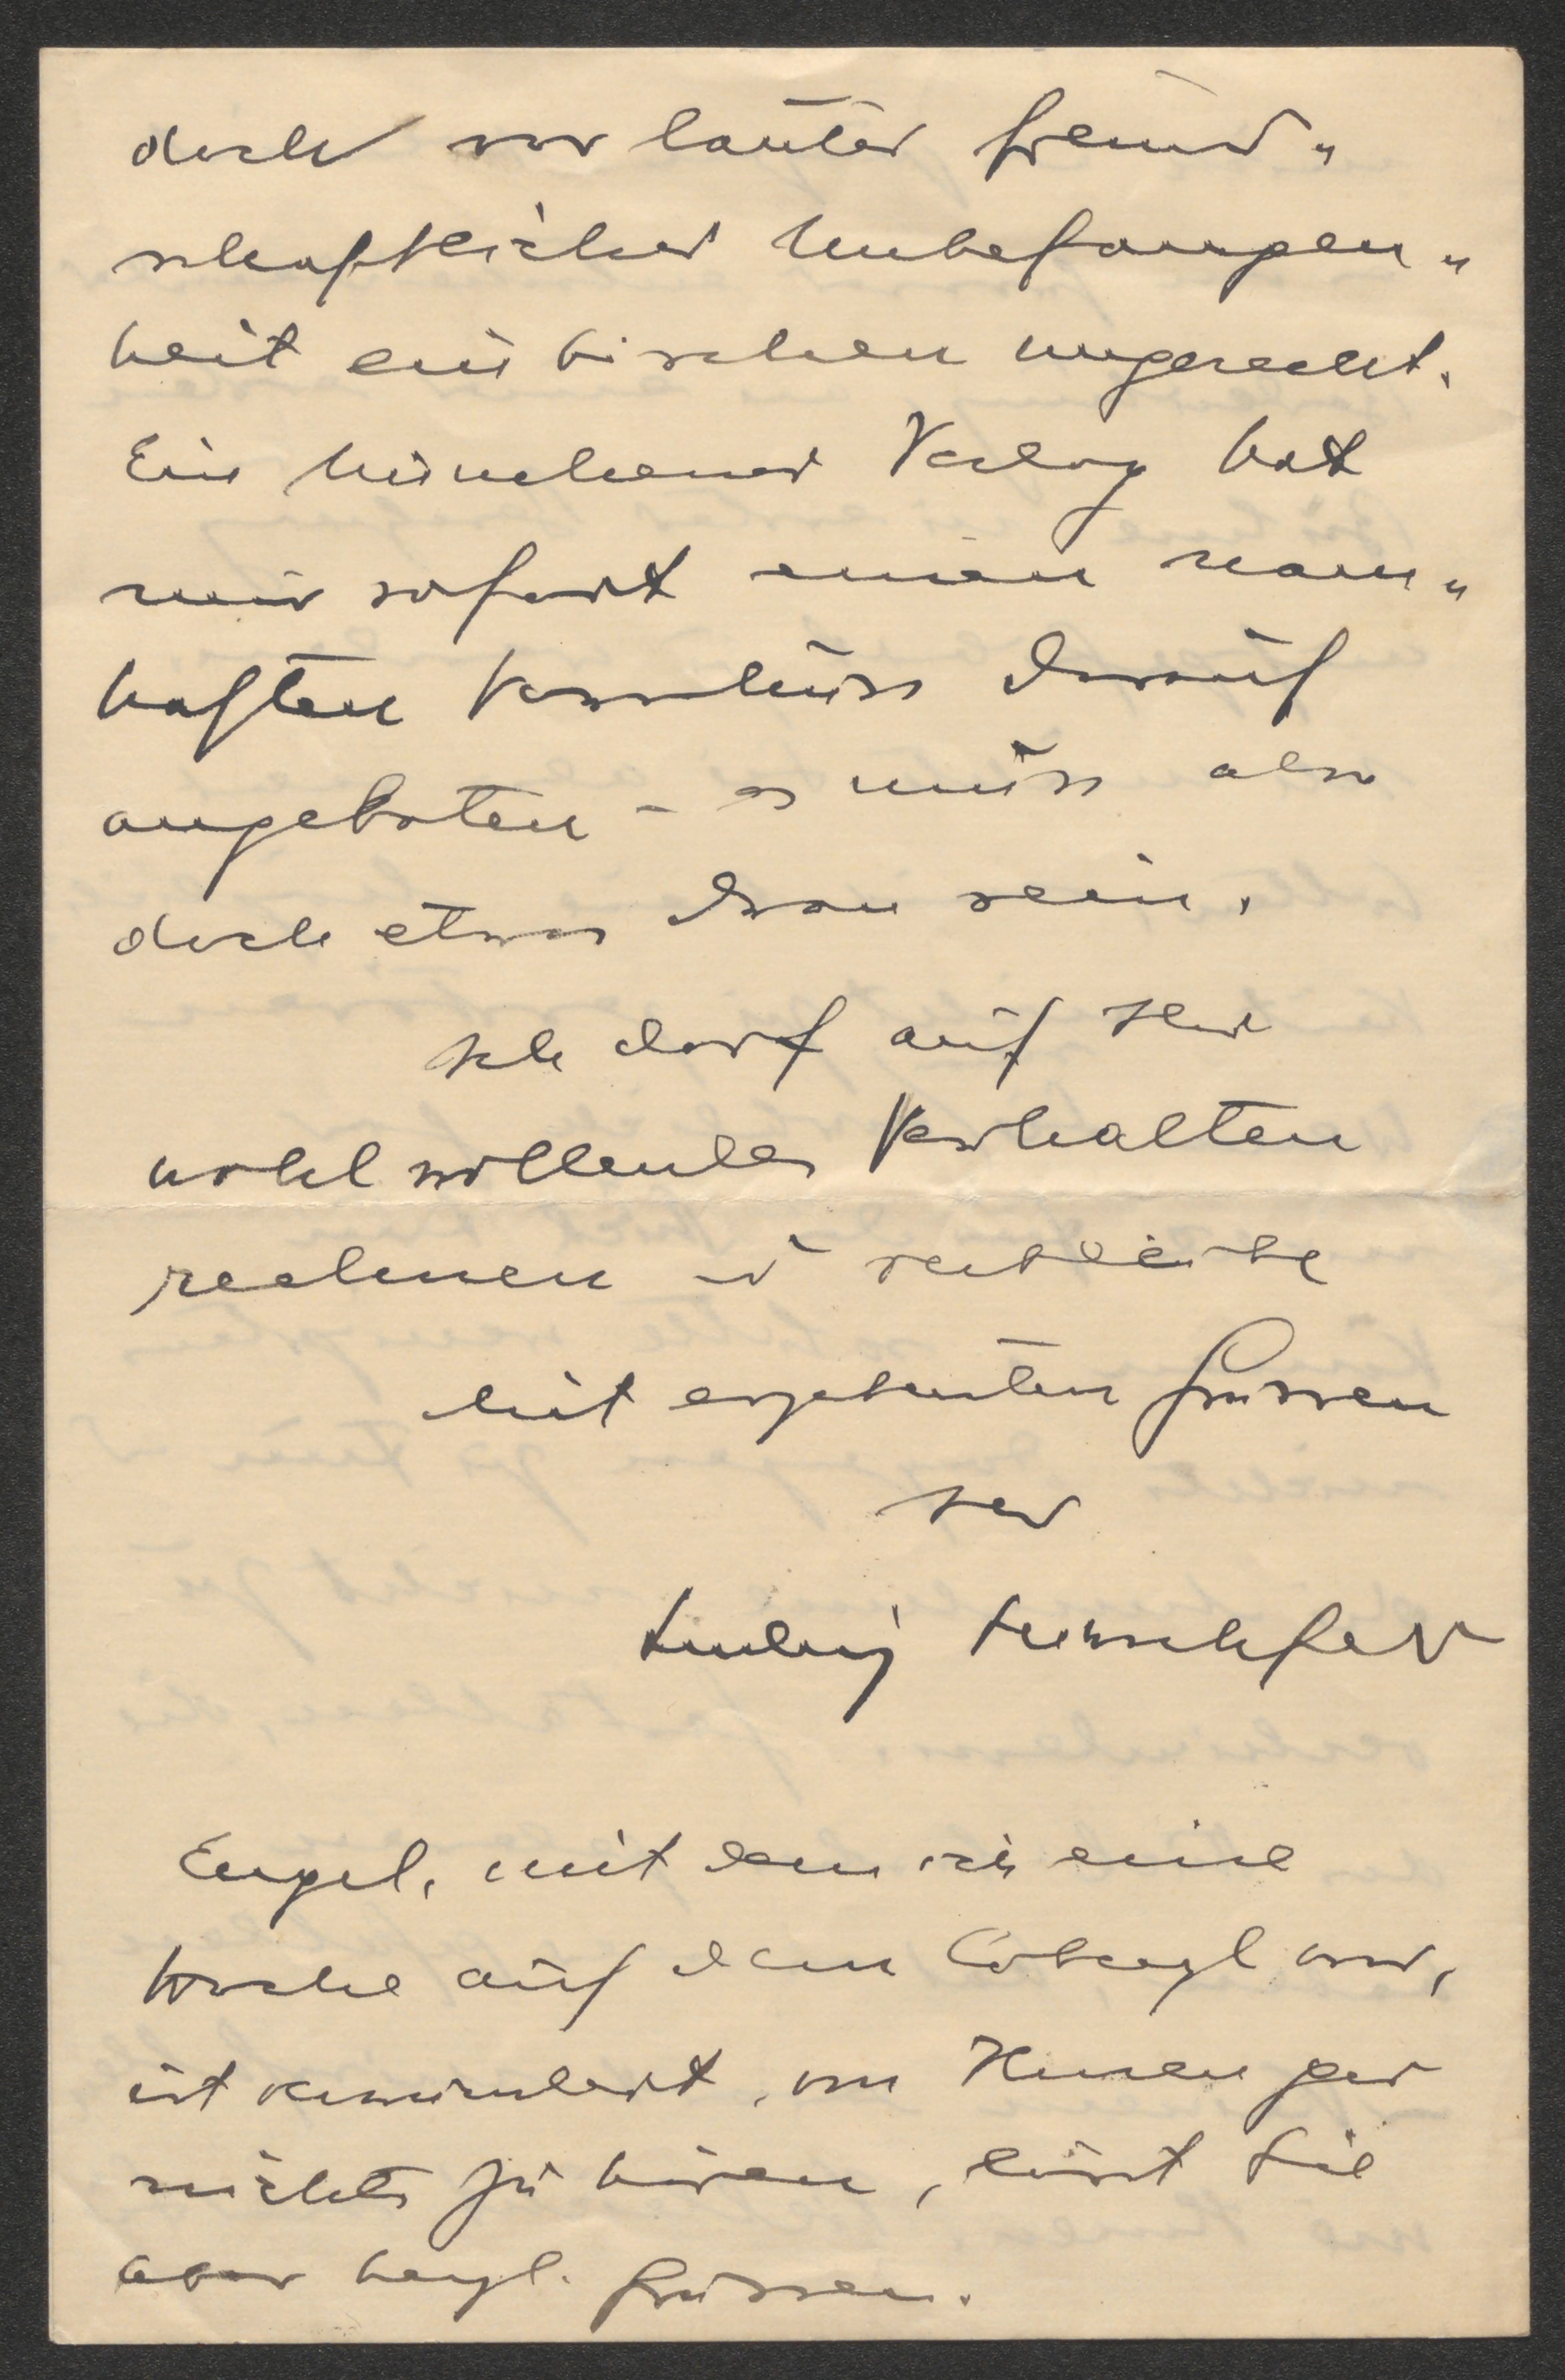 doch vor lauter freund„
schaftlicher Unbefangen„
heit ein bischen ungerecht.
Ein Münchener Verlag hat
mir sofort einen nam„
haften Vorschuss darauf
angeboten – es muss also
doch etwas dran sein.
Ich darf auf Ihr
wohlwollendes Verhalten
rechnen u verbleibe
mit ergebensten Grüssen
Ihr
Ludwig Hirschfeld
Engel, mit dem ich eine
Woche auf dem Cobenzl war,
ist verwundert, von Ihnen gar
nichts zu hören, lässt Sie
aber herzl. grüssen.